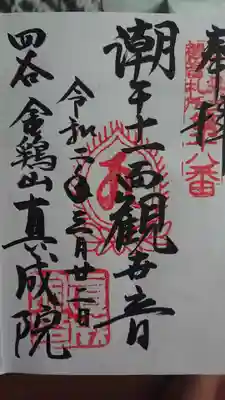 奉拝
十八番
潮干十一面観世音
令和二年三月廿二日
四谷 金鶏山 真成院